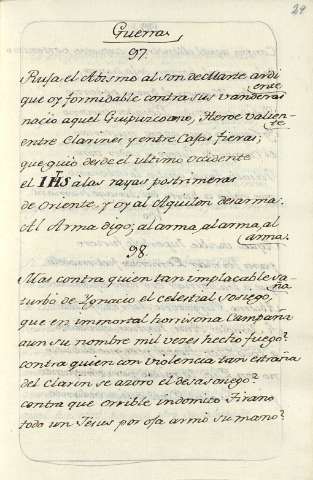 29
Guerras
97.
Rusa el Abismo al son de Marte ardi
ente
que oy formidable contra sus vanderas
nacio aquel Guipuzcoano, Heroe valien-
te
entre Clarines y entre Casas fieras;
que guio desde el ultimo occidente
el IHS à las rayas postrimeras
de Oriente, y oy al Aquilon desarma.
Al Arma digo; al arma, al arma, al
arma.
98.
Mas contra quien tan implacable sa
ña
turbó de Ygnacio el celestial sosiego,
que en immortal horrisona Campaña
aun su nombre mil vezes hecho fuego?
contra quien con violencia tan estraña
del Clarin se azoró el desasosiego?
contra que orrible indomito Tirano
todo un Jesus por osa armó su mano?